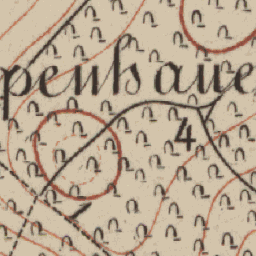 penhaue
4
1